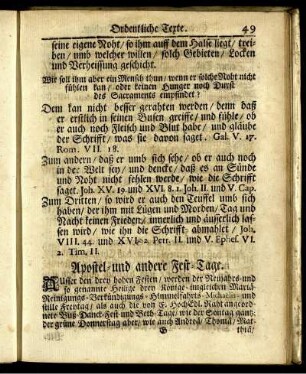 Ordentliche Texte. 49
seine eigene Noht / so ihm auff dem Halse liegt / trei-
ben / umb welcher willen / solch Gebieten / Locken
und Verheissung geschicht.
Wie soll ihm aber ein Mensch thun / wenn er solche Noht nicht
fühlen kan / oder keinen Hunger noch Durst
des Sacraments empfindet?
Dem kan nicht besser gerahten werden / denn daß
er erstlich in seinen Busen greiffe / und fühle / ob
er auch noch Fleisch und Blut habe / und gläube
der Schrifft / was sie davon saget. Gal. V. 17.
Rom. VII. 18.
Zum andern / daß er umb sich sehe / ob er auch noch
in der Welt sey / und dencke / daß es an Sünde
und Noht nicht fehlen werde / wie die Schrifft
saget. Joh. XV. 19 und XVI. 8. 1. Joh. II. und V. Cap.
Zum Dritten / so wird er auch den Teuffel umb sich
haben / der ihm mit Lügen und Morden / Tag und
Nacht keinen Frieden / innerlich und äuserlich las-
sen wird / wie ihn die Schrifft abmahlet / Joh.
VIII. 44. und XVI. 2. Petr. II. und V. Ephes. VI.
2. Tim. II.
Apostel- und andere Fest-Tage.
Ausser den drey hohen Festen / werden der Neujahrs- und
so genannte Heilige drey Könige- ingleichen Mariä-
Reinigungs- Verkündigungs- Himmelfahrts- Michaelis- und
stille Freytag / als auch die von E. HochEdl. Raht angeord-
nete Buß- Danck-Fest und Beth-Tage / wie der Sontag gantz:
der grüne Donnerstag aber / wie auch Andreä / Thomä / Mat-
thiä /